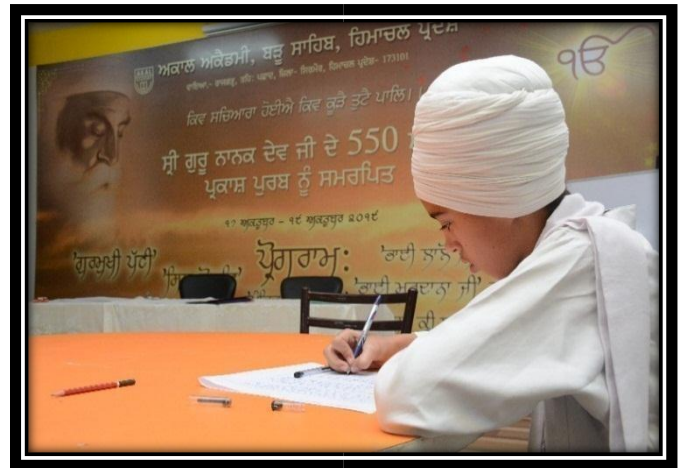 ਅਕਾਲ ਅਕੈਡਮੀ, ਬੜੂ ਸਾਹਿਬ, ਹਿਮਾਚਲ ਪ੍ਰਦੇਸ਼
ਹਿਮਾਚਲ ਪ੍ਰਦੇਸ਼- 173101
ਕਿਵ ਸਚਿਆਰਾ ਹੋਈਐ ਕਿਵ ਕੂੜੈ ਤੁਟੈ ਪਾਲਿ।
ਸ੍ਰੀ ਗੁਰੂ ਨਾਨਕ ਦੇਵ ਜੀ ਦੇ 550
ਪ੍ਰਕਾਸ਼ ਪੁਰਬ ਨੂੰ ਸਮਰਪਿਤ
ਅਕਤੂਬਰ - ੧੯ ਅਕਤੂਬਰ ੨੦੧੯
'ਗੁਰਮੁਖੀ ਪੱਟੀ'
ਪ੍ਰੋਗਰਾਮ:
'ਭਾਈ ਲਾਲੋ
'ਭਾਈ ਮਰਦਾਨਾ ਜੀ'
ੴ